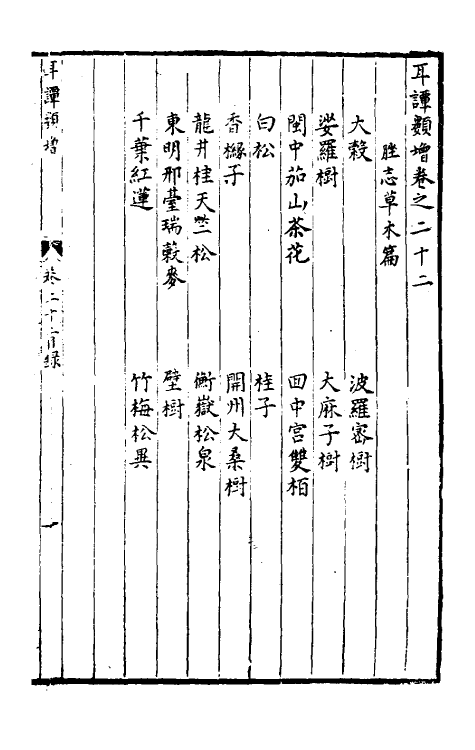 耳譚類增卷之二十二
胜志草木篇
大穀　波羅宻樹
娑羅樹　大麻子樹
閩中茄山茶花　回中宫雙栢
白松　桂子
香櫞子　開州大桑樹
龍井桂天竺松　衡嶽松泉
東明邢臺瑞穀麥　壁樹
千葉紅蓮　竹梅松異
耳譚類增　卷二十二目録　一